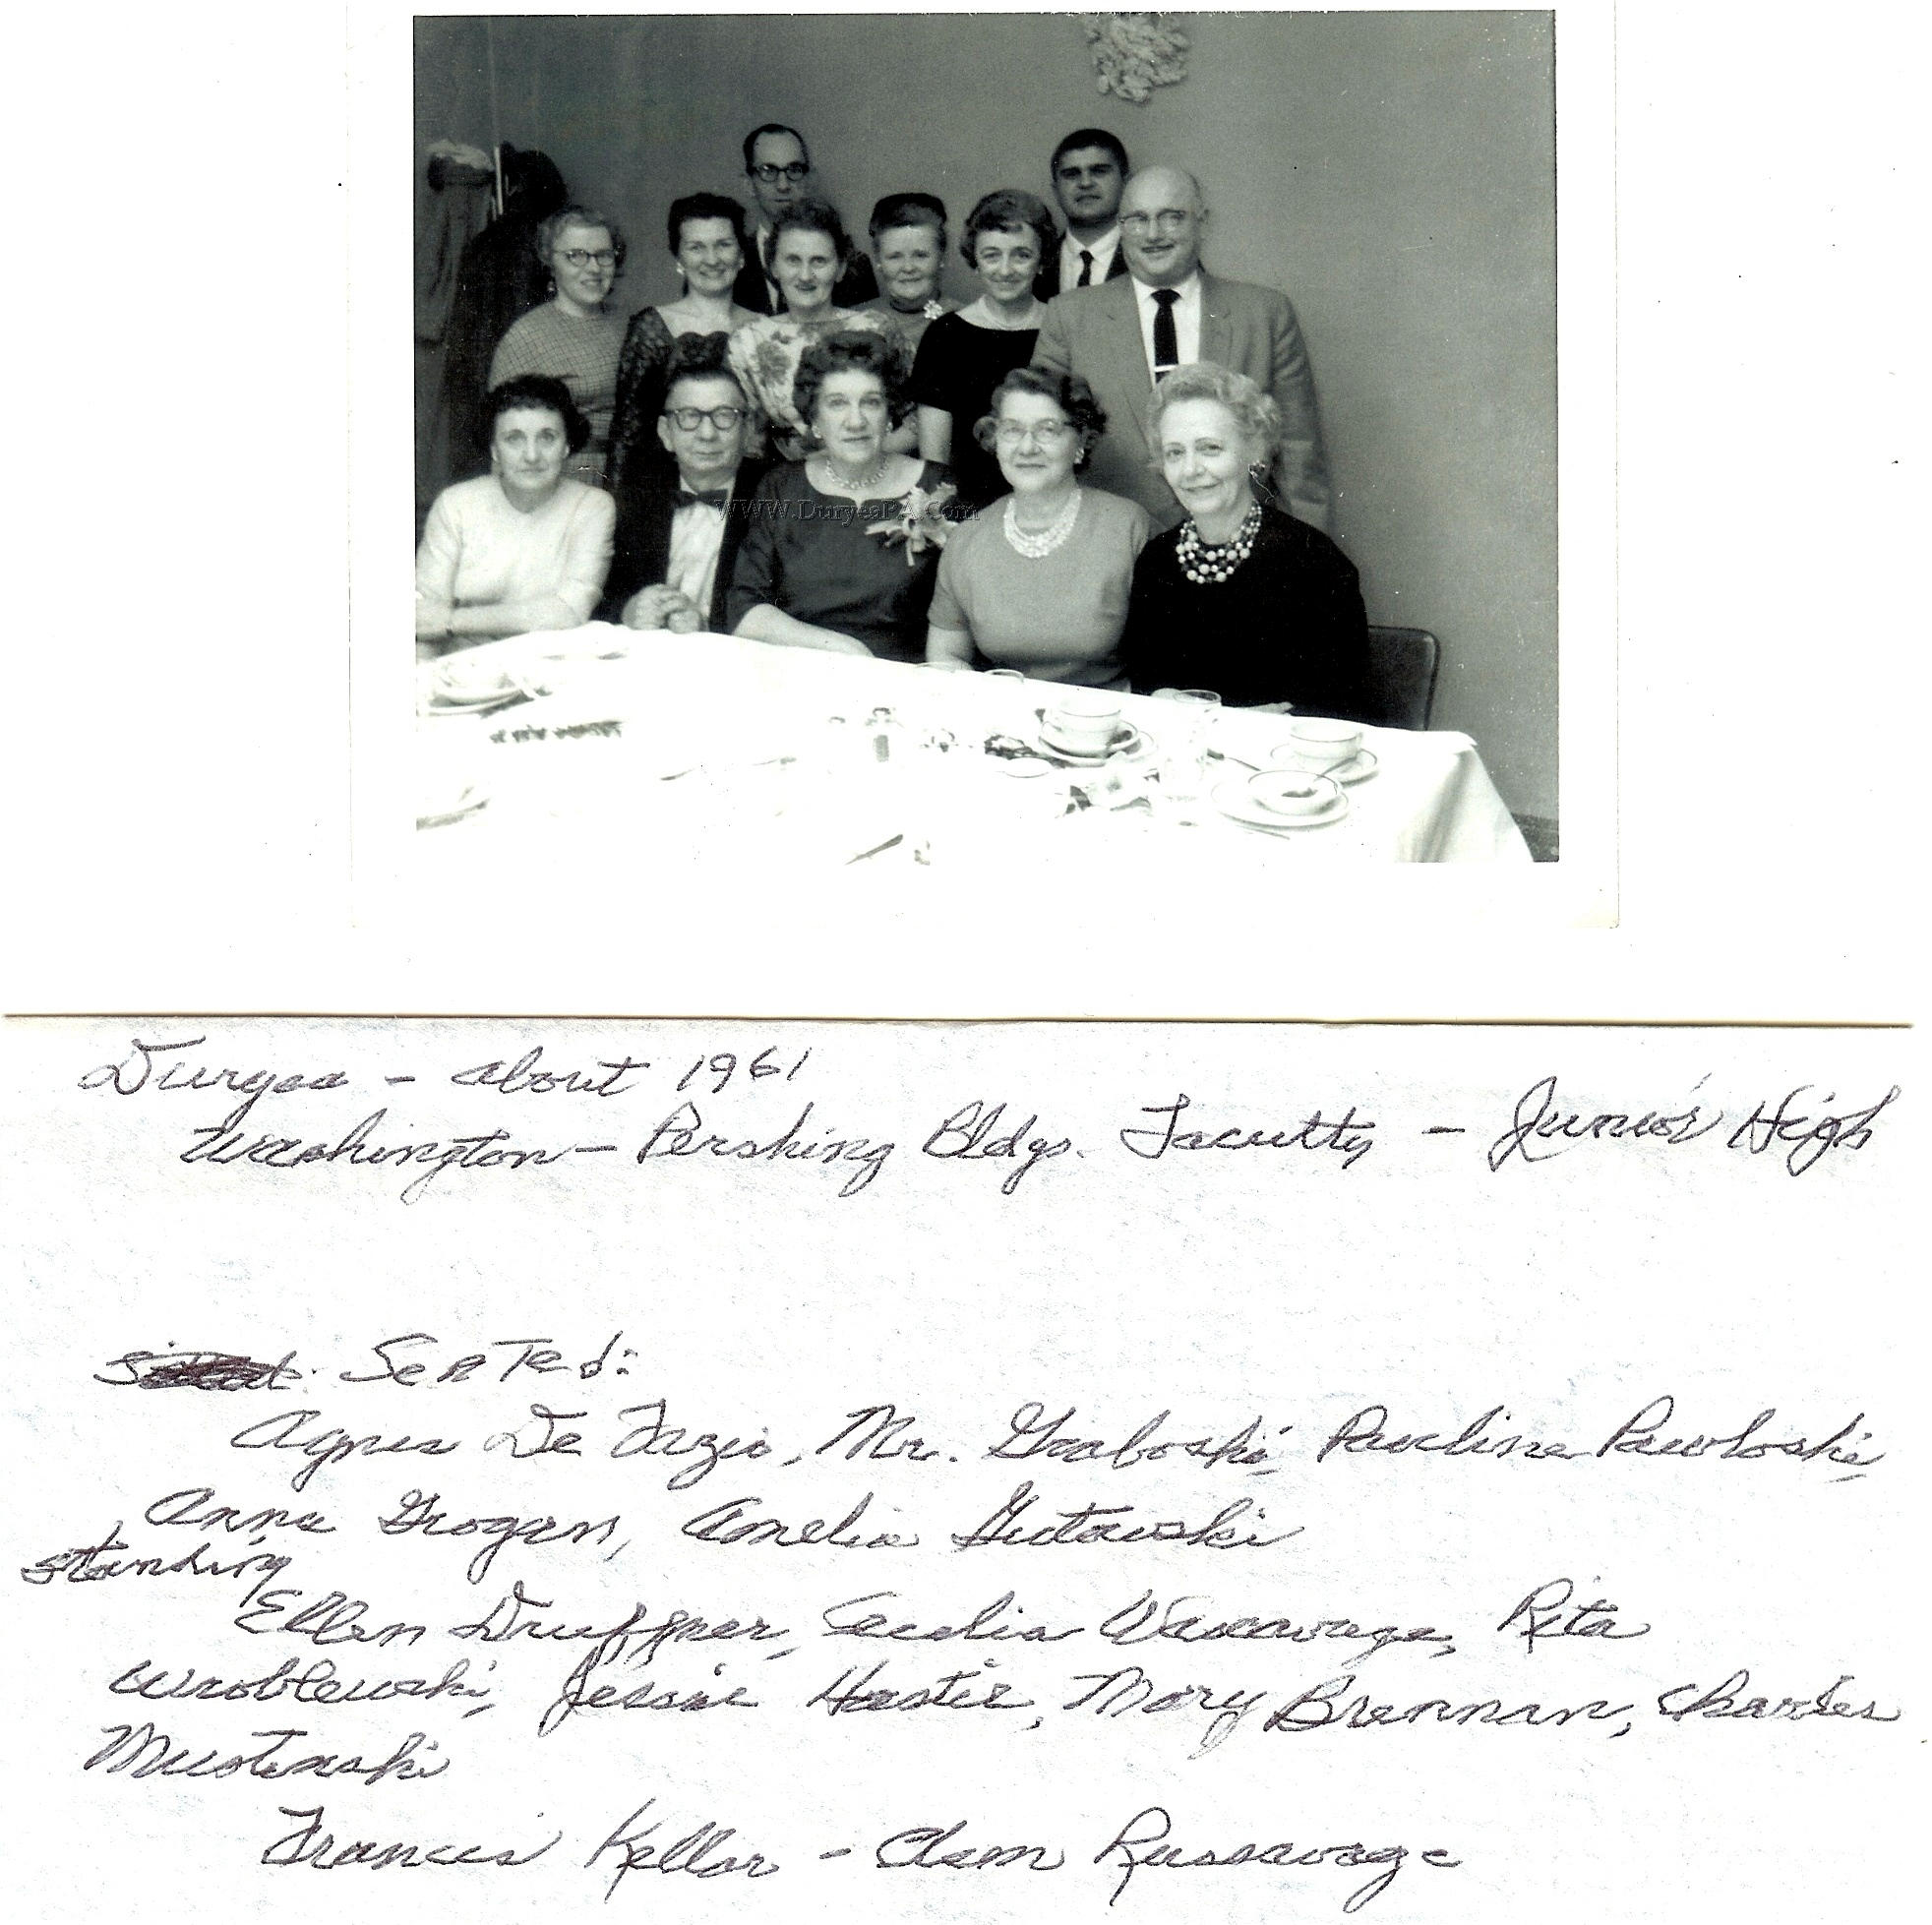 WWW.DuryeaPA.Com
Duryea - about 1961
Washington - Pershing Bldgs. Faculty - Junior High
Seated:
Agnes De Fazio, Mr. Graboski, Pauline Pawloski,
Anna Grogan, Amelia Gutowski
standing
Ellen Druffner, Cecelia Wasavage, Rita
Wroblewski, Jessie Hastie, Mary Brennan, Charles
Musteaski
Francis Kellar - Clem Russavage